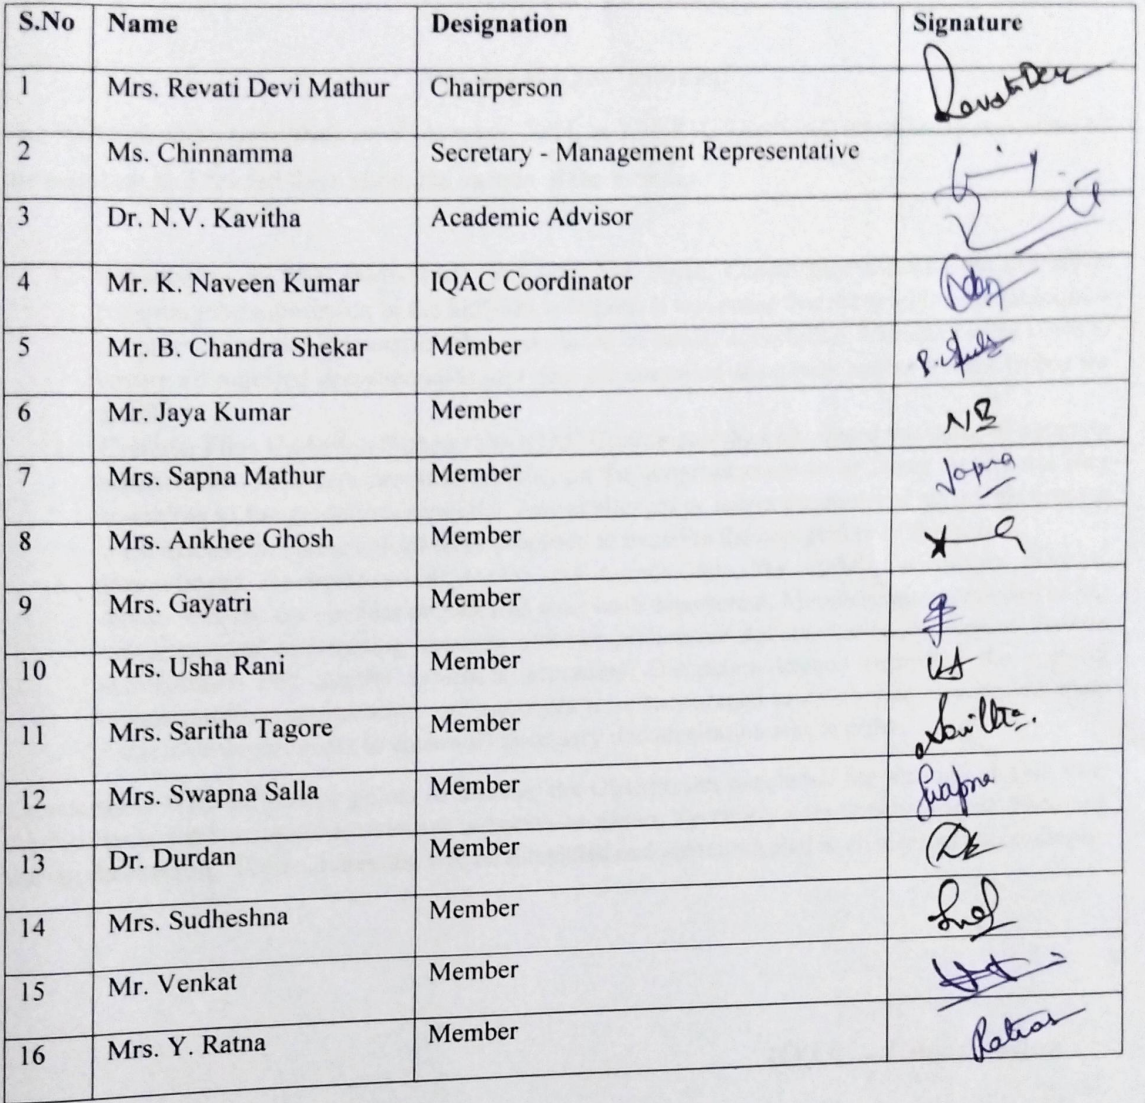 S.No Name Designation Signature
1 Mrs. Revati Devi Mathur Chairperson Revati Devi
2 Ms. Chinnamma Secretary - Management Representative
3 Dr. N.V. Kavitha Academic Advisor
4 Mr. K. Naveen Kumar IQAC Coordinator
5 Mr. B. Chandra Shekar Member
6 Mr. Jaya Kumar Member NB
7 Mrs. Sapna Mathur Member Sapna
8 Mrs. Ankhee Ghosh Member
9 Mrs. Gayatri Member
10 Mrs. Usha Rani Member
11 Mrs. Saritha Tagore Member
12 Mrs. Swapna Salla Member Swapna
13 Dr. Durdan Member
14 Mrs. Sudheshna Member
15 Mr. Venkat Member
16 Mrs. Y. Ratna Member